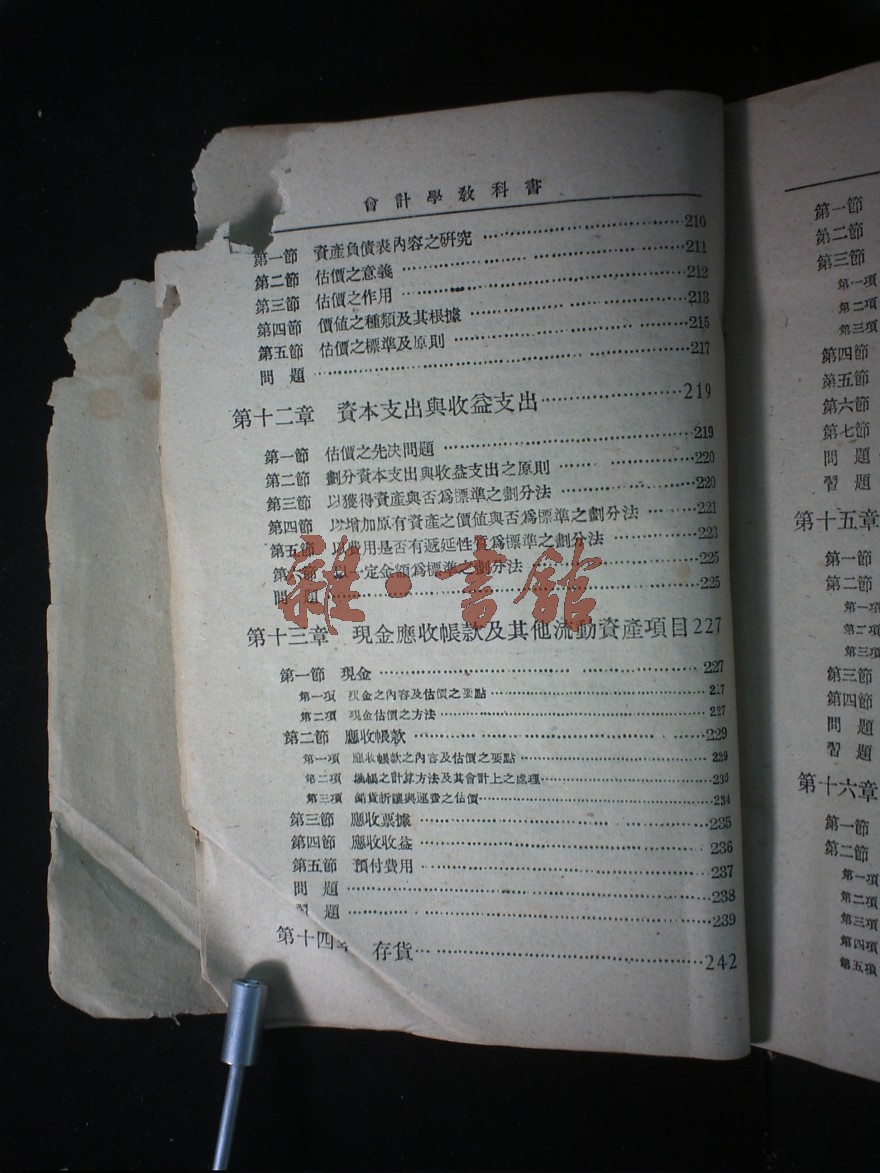 會計學教科書
第一節 資產負債表內容之研究 210
第二節 估價之意義 211
第三節 估價之作用 212
第四節 價值之種類及其根據 213
第五節 估價之標準及原則 215
問題 217
第十二章 資本支出與收益支出 219
第一節 估價之先決問題 219
第二節 劃分資本支出與收益支出之原則 220
第三節 以獲得資產與否爲標準之劃分法 220
第四節 以增加原有資產之價值與否爲標準之劃分法 221
第五節 以費用是否有遞延性質爲標準之劃分法 223
第六節 以一定金額爲標準之劃分法 225
問題 225
雜·書館
第十三章 現金應收帳款及其他流動資產項目 227
第一節 現金 227
第一項 現金之內容及估價之要點 227
第二項 現金估價之方法 227
第二節 應收帳款 229
第一項 應收帳款之內容及估價之要點 229
第二項 之計算方法及其會計上之處理 230
第三項 銷貨折讓與運費之估價 234
第三節 應收票據 235
第四節 應收收益 236
第五節 預付費用 237
問題 238
習題 239
第十四章 存貨 242
第一節
第二節
第三節
第一項
第二項
第三項
第四節
第五節
第六節
第七節
問題
習題
第十五章
第一節
第二節
第一項
第二項
第三項
第三節
第四節
問題
習題
第十六章
第一節
第二節
第一項
第二項
第三項
第四項
第五項